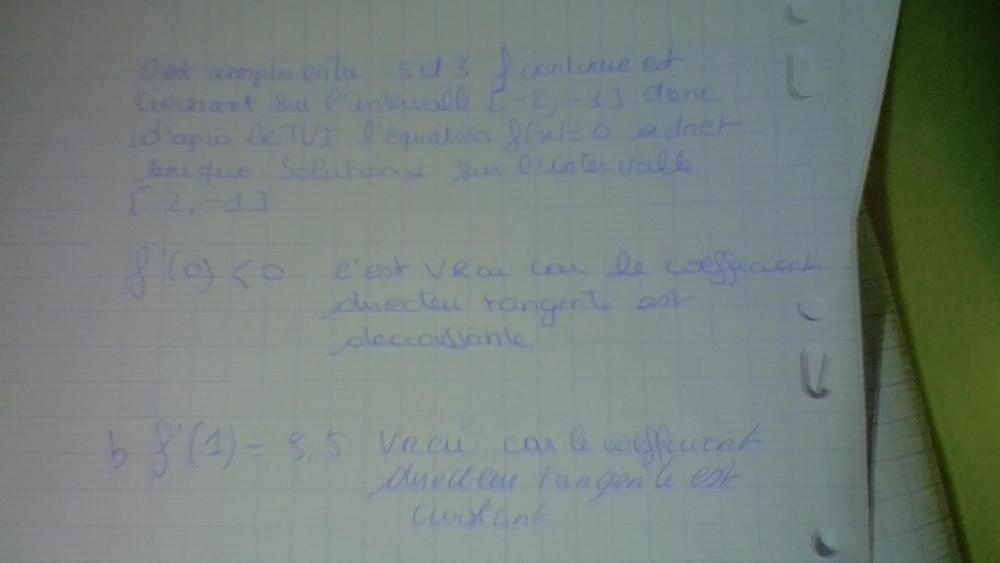 0 est compris entre -5 et 3 f continue est
croissant sur l'intervalle [-2, -1] donc
d'après le TVI l'équation f(x) = 0 admet
unique Solution α sur l'intervalle
[-2, -1]
f'(0) < 0 c'est vrai car le coefficient
directeu tangente est
decroissante
b f'(1) = 3,5 vrai car le coefficient
directeu tangente est
croissant